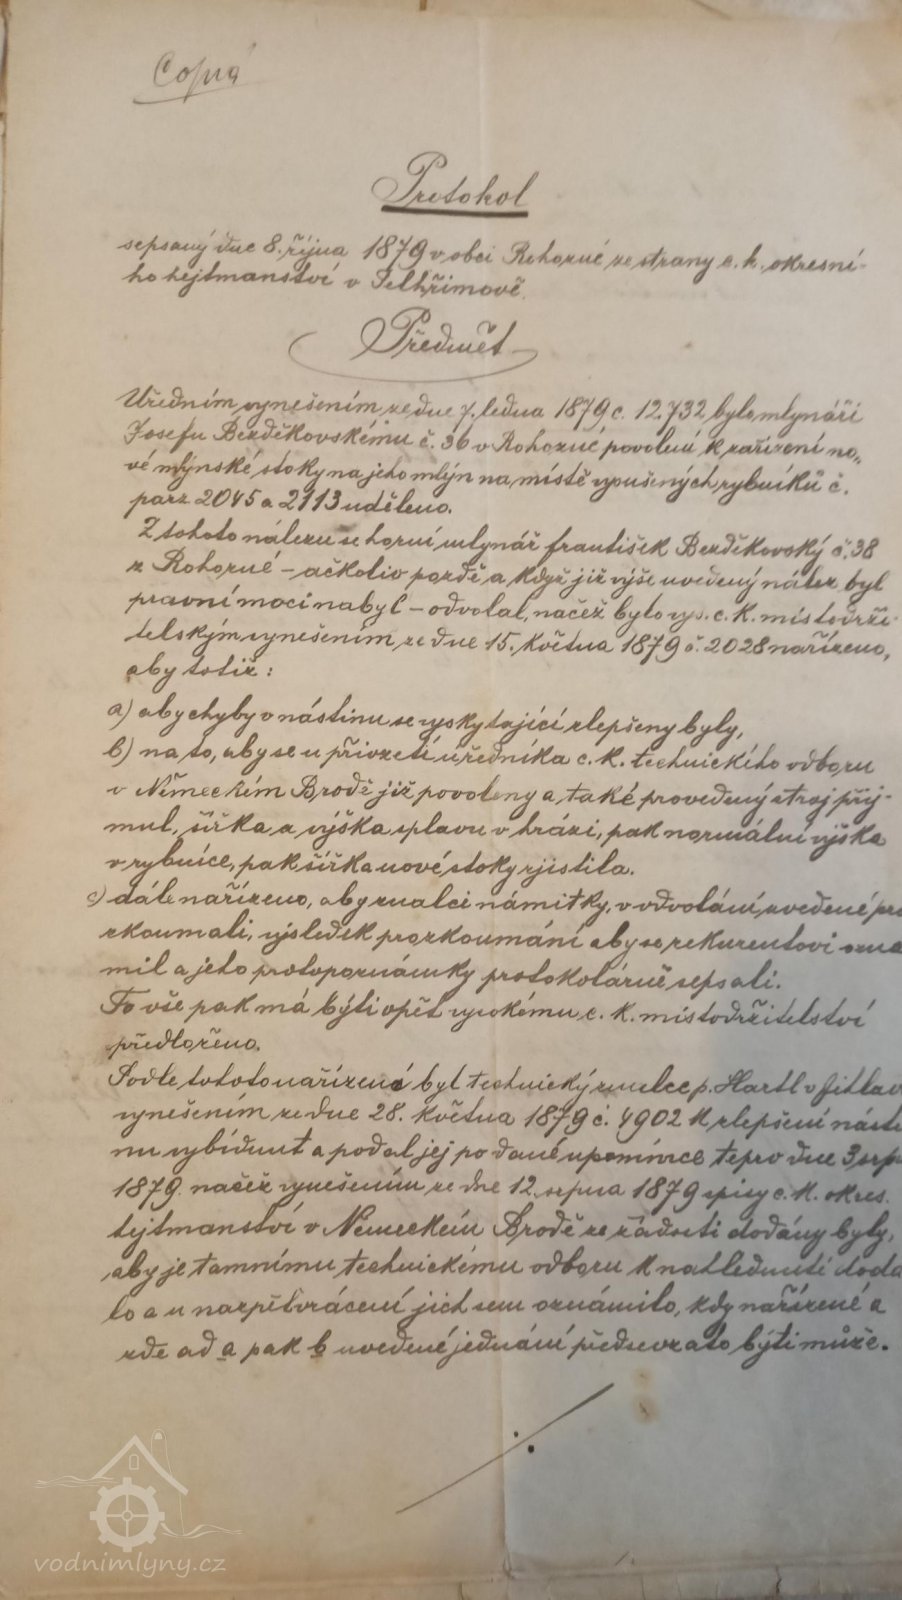 Copia
Protokol
sepsaný dne 8. října 1879 v obci Rohozné ze strany c. k. okresní-
ho hejtmanství v Pelhřimově.
Předmět
Úředním vynešením ze dne 7. ledna 1879 č. 12.732 bylo mlynáři
Josefu Bezděkovskému č. 36 v Rohozné povolení k zařízení no-
vé mlýnské stoky na jeho mlýn na místě vysušených rybníků č.
parz 2045 a 2113 uděleno.
Z tohoto nálezu se horní mlynář František Bezděkovský č. 38
z Rohozné – ačkoliv pozdě a když již výše uvedený nález byl
pravní moci nabyl – odvolal, načež bylo vys. c. k. místodrži-
telským vynešením ze dne 15. května 1879 č. 2028 nařízeno,
aby totiž:
a) aby chyby v nástinu se vyskytající zlepšeny byly,
b) na to, aby se u přivzetí úředníka c. k. technického odboru
v Německém Brodě již povoleny a také provedený stroj přij-
mul, šířka a výška splavu v hrázi, pak normální výška
v rybníce, pak šířka nové stoky zjistila.
c) dále nařízeno, aby znalci námitky, v odvolání uvedené pro
zkoumali, výsledek prozkoumání aby se rekurentovi ozná
mil a jeho protopoznámky protokolárně sepsali.
To vše pak má býti opět vysokému c. k. místodržitelství
předloženo.
Podle tohoto nařízení byl technický znalec p. Hartl v Jihlavě
vynešením ze dne 28. května 1879 č. 4902 k zlepšení násti
nu vybídnut a podal jej po dané upomínce teprv dne 3 srp
1879. načež vynešením ze dne 12. srpna 1879 spisy c. k. okres.
hejtmanství v Německém Brodě ze žádostí dodány byly,
aby je tamnímu technickému odboru k nahlednutí doda
lo a u nazpětvrácení jich sem oznámilo, kdy nařízené a
zde ad a pak b uvedené jednání předsevzato býti může.
vodnimlyny.cz